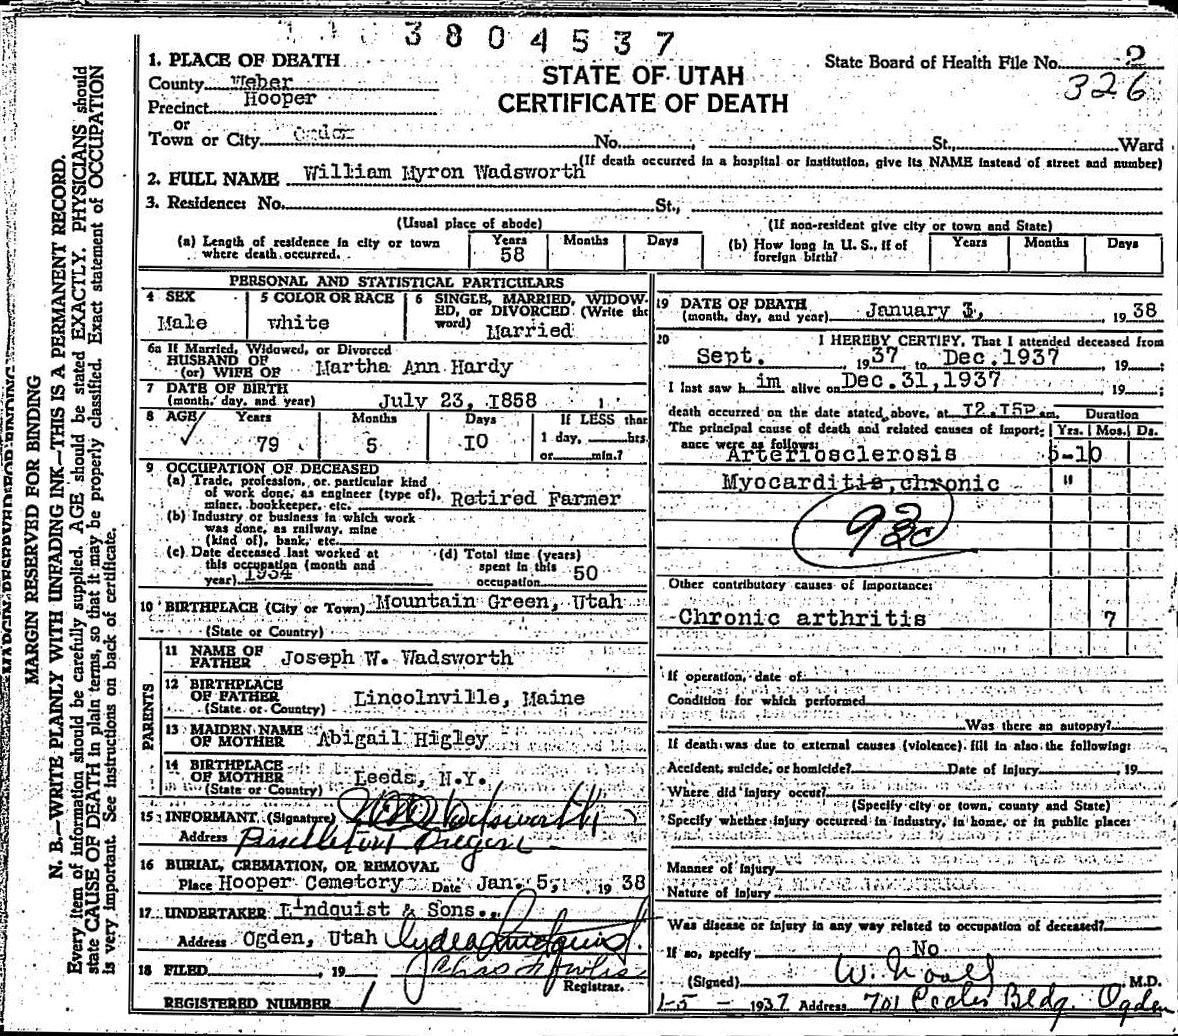 3804537
State Board of Health File No. 2
326
STATE OF UTAH
CERTIFICATE OF DEATH
1. PLACE OF DEATH
County Weber
Precinct Hooper
or
Town or City No. St., Ward
(If death occurred in a hospital or institution, give its NAME instead of street and number)
2. FULL NAME William Myron Wadsworth
3. Residence: No. St.,
(Usual place of abode) (If non-resident give city or town and State)
(a) Length of residence in city or town where death occurred. Years 58 Months Days
(b) How long in U. S., if of foreign birth? Years Months Days
PERSONAL AND STATISTICAL PARTICULARS
4 SEX Male
5 COLOR OR RACE white
6 SINGLE, MARRIED, WIDOWED, or DIVORCED (Write the word) Married
6a If Married, Widowed, or Divorced
HUSBAND OF
(or) WIFE OF Martha Ann Hardy
7 DATE OF BIRTH
(month, day, and year) July 23, I858
8 AGE Years 79 Months 5 Days I0
If LESS than 1 day, hrs. or min.?
9 OCCUPATION OF DECEASED
(a) Trade, profession, or particular kind
of work done, as engineer (type of),
miner, bookkeeper, etc. Retired Farmer
(b) Industry or business in which work
was done, as railway, mine
(kind of), bank, etc.
(c) Date deceased last worked at
this occupation (month and
year) 1934
(d) Total time (years)
spent in this
occupation 50
10 BIRTHPLACE (City or Town) Mountain Green, Utah
(State or Country)
PARENTS
11 NAME OF
FATHER Joseph W. Wadsworth
12 BIRTHPLACE
OF FATHER Lincolnville, Maine
(State or Country)
13 MAIDEN NAME
OF MOTHER Abigail Higley
14 BIRTHPLACE
OF MOTHER Leeds, N.Y.
(State or Country)
15 INFORMANT (Signature) Wadsworth
Address Pendleton Oregon
16 BURIAL, CREMATION, OR REMOVAL
Place Hooper Cemetory Date Jan. 5, 19 38
17 UNDERTAKER Lindquist & Sons.
Address Ogden, Utah
18 FILED , 19
Registrar.
REGISTERED NUMBER 1
19 DATE OF DEATH
(month, day, and year) January 3, 19 38
20 I HEREBY CERTIFY, That I attended deceased from
Sept. 19 37 to Dec. 1937 , 19 ;
I last saw h im alive on Dec. 31, 1937 , 19 ;
death occurred on the date stated above, at I2.I5P m. Duration
The principal cause of death and related causes of importance were as follows: Yrs. Mos. Ds.
Arteriosclerosis 5-10
Myocarditis, chronic "
Other contributory causes of importance:
Chronic arthritis 7
If operation, date of
Condition for which performed
Was there an autopsy?
If death was due to external causes (violence) fill in also the following:
Accident, suicide, or homicide? Date of injury , 19
Where did injury occur?
(Specify city or town, county and State)
Specify whether injury occurred in industry, in home, or in public place:
Manner of Injury
Nature of Injury
Was disease or injury in any way related to occupation of deceased?
If so, specify No
(Signed) M.D.
1-5 - 1937 Address 701 Eccles Bldg. Ogden
MARGIN RESERVED FOR BINDING
N. B.—WRITE PLAINLY WITH UNFADING INK—THIS IS A PERMANENT RECORD.
Every item of information should be carefully supplied. AGE should be stated EXACTLY. PHYSICIANS should
state CAUSE OF DEATH in plain terms, so that it may be properly classified. Exact statement of OCCUPATION
is very important. See instructions on back of certificate.